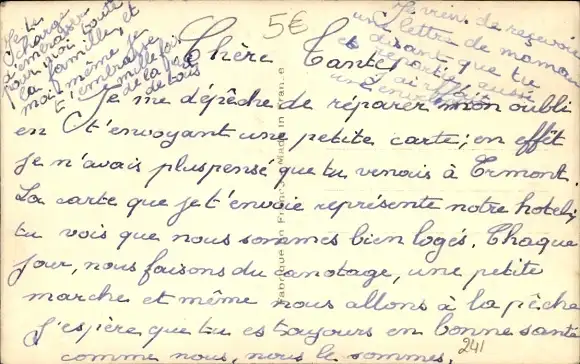 Je te
charge
d'embrasser
pour moi toute
la famille, et
moi-même je
t'embrasse mille fois
de la part
de tous
5€
Je viens de recevoir
une lettre de maman
disant que tu
es partie, aussi
Chère Tante,
Je me dépêche de réparer mon oubli
en t'envoyant une petite carte; en effêt
je n'avais plus pensé que tu venais à Ermont.
La carte que je t'envoie représente notre hotel;
tu vois que nous sommes bien logés. Chaque
jour, nous faisons du canotage, une petite
marche et même nous allons à la pêche
J'espère que tu es toujours en bonne santé
comme nous, nous le sommes.
241
Fabriqué en France - Made in France